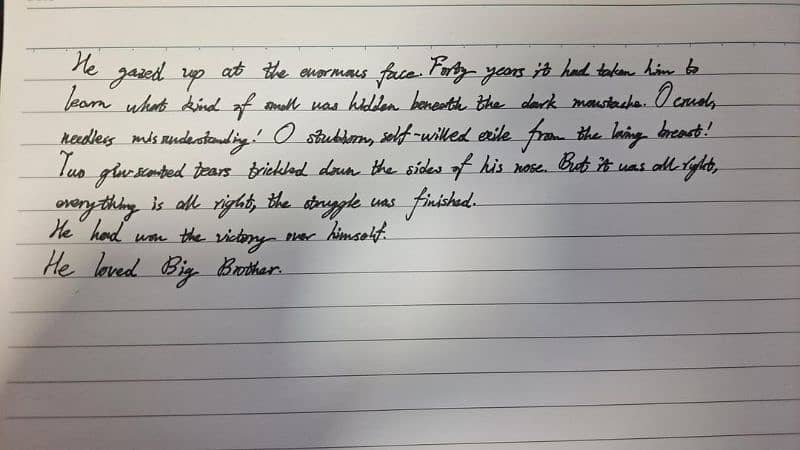 He gazed up at the enormous face. Forty years it had taken him to
learn what kind of smell was hidden beneath the dark moustache. O cruel,
needless misunderstanding! O stubborn, self-willed exile from the loving breast!
Two gin-scented tears trickled down the sides of his nose. But it was all right,
everything is all right, the struggle was finished.
He had won the victory over himself.
He loved Big Brother.